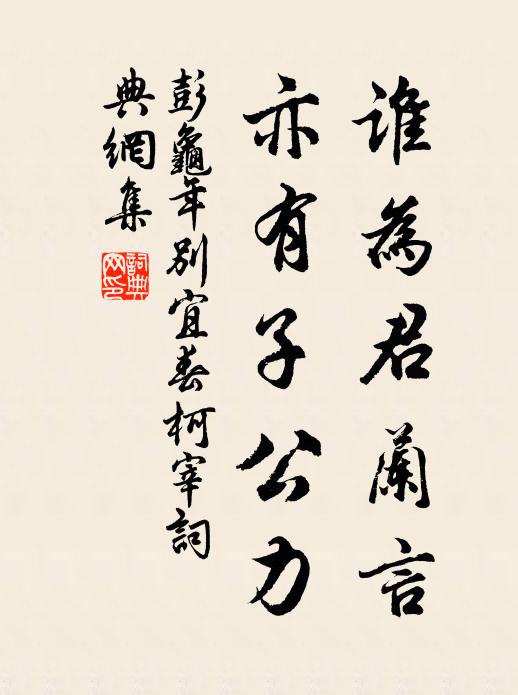 誰為君蘭言
亦有子公力
彭龜年別宜春柯宰詞
典網集
詞典網印